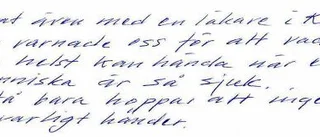 at även med en läkare i K
varnade oss för att vad
helst kan hända när e
nniska är så sjuk.
så bara hoppas att inge
varligt händer.